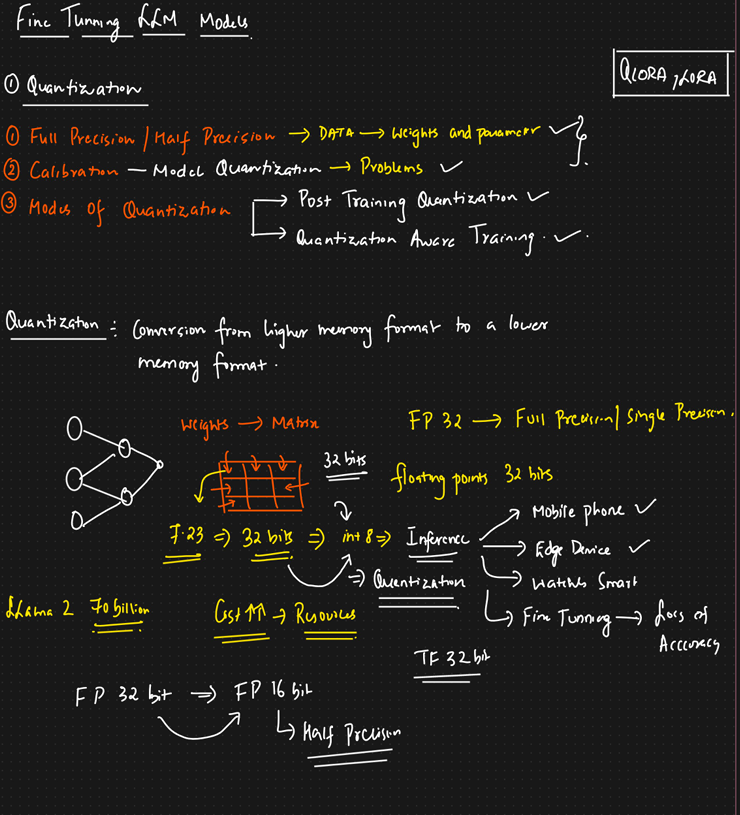 Fine Tunning LLM Models
QLORA, LORA
① Quantization
① Full Precision / Half Precision → DATA → Weights and parameter ✓ }
② Calibration – Model Quantization → Problems ✓
③ Modes of Quantization
→ Post Training Quantization ✓
→ Quantization Aware Training. ✓.
Quantization : Conversion from higher memory format to a lower
memory format.
Weights → Matrix
FP 32 → Full Precision / Single Precision.
32 bits
floating points 32 bits
7.23 ⇒ 32 bits ⇒ int 8 ⇒ Inference
→ Mobile phone ✓
→ Edge Device ✓
→ Watches Smart
→ Fine Tunning → Loss of
Acccuracy
⇒ Quantization
LLama 2 70 billion
Cost ↑↑ → Resources
TF 32 bit
FP 32 bit ⇒ FP 16 bit
↳ Half Precision